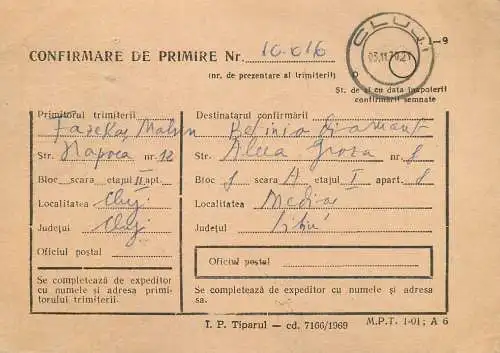 CLUJ
03.11.70.21
-9
CONFIRMARE DE PRIMIRE Nr. 10.016
(nr. de prezentare al trimiterii)
Șt. de zi cu data înapoierii
confirmării semnate
Primitorul trimiterii
Str. Napoca nr. 12
Bloc scara etajul II apt.
Localitatea Cluj
Județul Cluj
Oficiul poștal
Se completează de expeditor
cu numele și adresa primi-
torului trimiterii.
Destinatarul confirmării
Str. Aleea Groza nr. 8
Bloc 1 scara A etajul I apart. 8
Localitatea Mediaș
Județul Sibiu
Oficiul poștal
Se completează de expeditor cu numele și adresa
sa.
I. P. Tiparul — cd. 7166/1969
M.P.T. 1-01; A 6